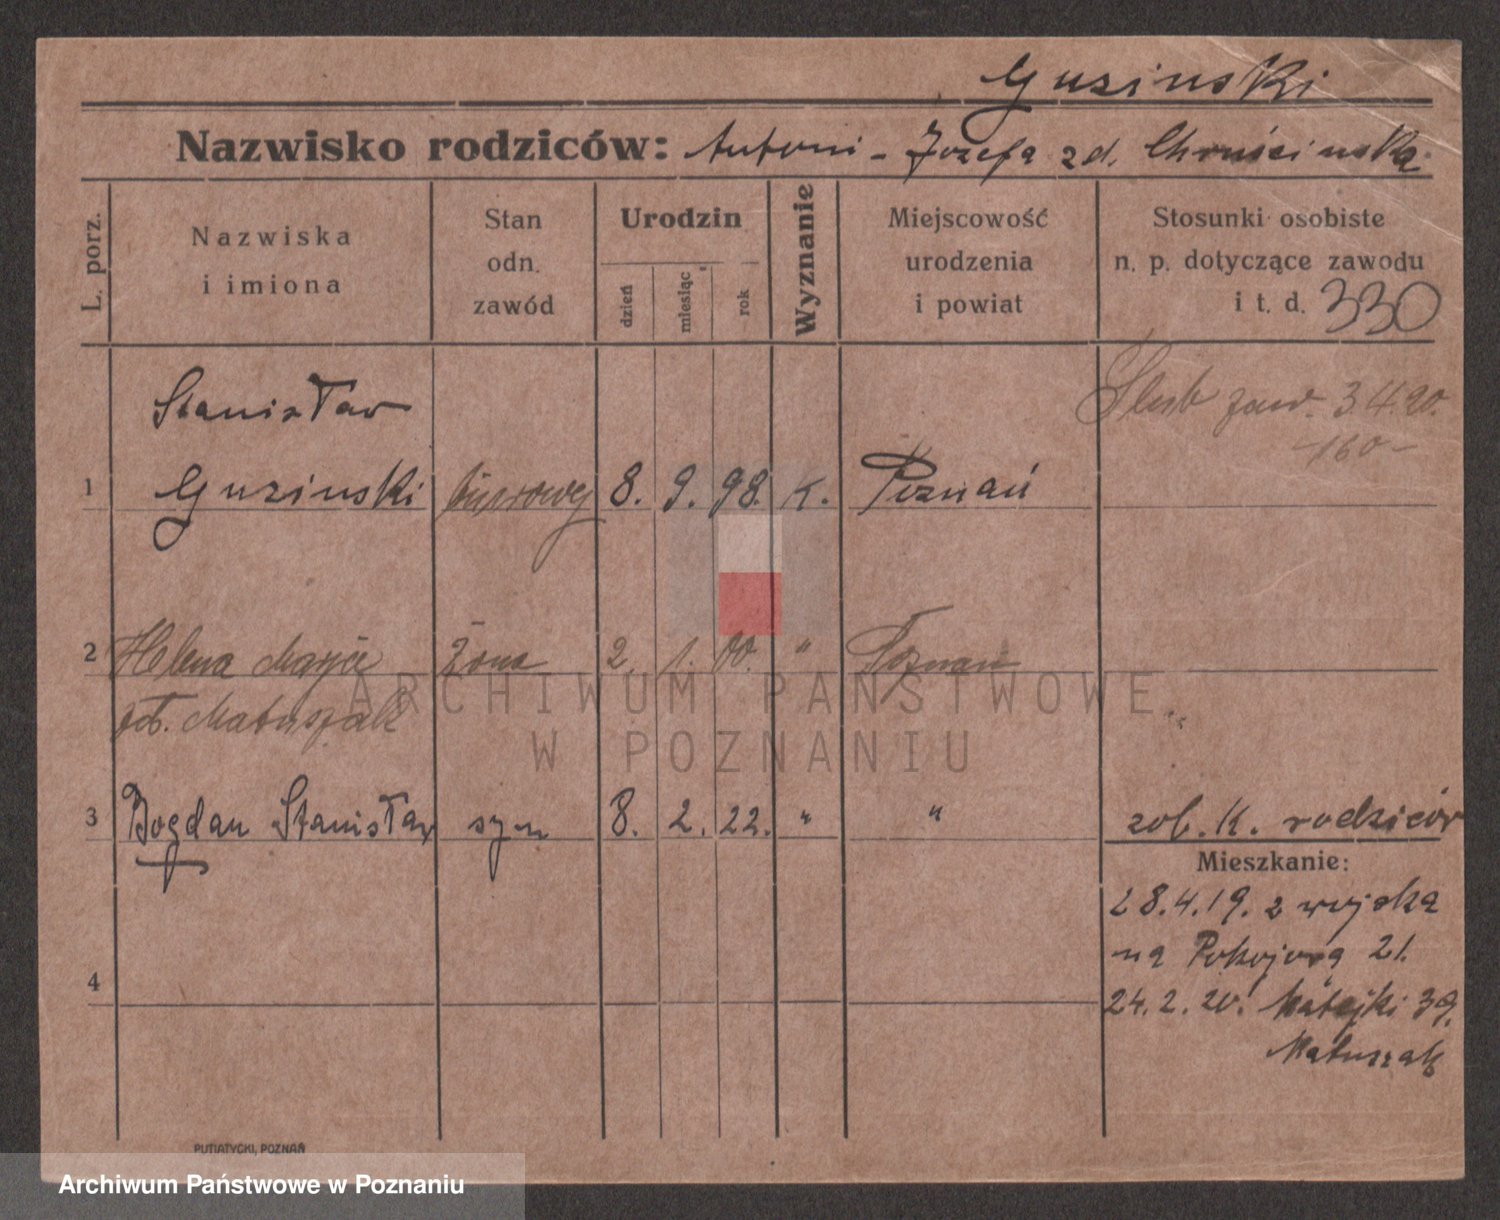 Guzinski
Nazwisko rodziców: Antoni - Józefa zd. Chruścinska
L. porz.
Nazwiska
i imiona
Stan
odn.
zawód
Urodzin
dzień
miesiąc
rok
Wyznanie
Miejscowość
urodzenia
i powiat
Stosunki osobiste
n. p. dotyczące zawodu
i t. d. 330
Stanisław
Ślub zaw. 3.4.20.
160-
1 Guzinski biurowy 8. 9. 98. K. Poznań
2 Helena Marja żona 2. 1. 00. " Poznań
Matuszak
3 Bogdan Stanisław syn 8. 2. 22. " " zob. K. rodziców
Mieszkanie:
28.4.19. z wojska
na Pokojową 21.
4
24.2.20. Matejki 39.
Matuszak
PUTIATYCKI, POZNAŃ
ARCHIWUM PAŃSTWOWE
W POZNANIU
Archiwum Państwowe w Poznaniu